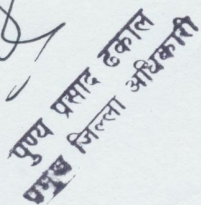 पुण्य प्रसाद ढकाल
प्रमुख जिल्ला अधिकारी